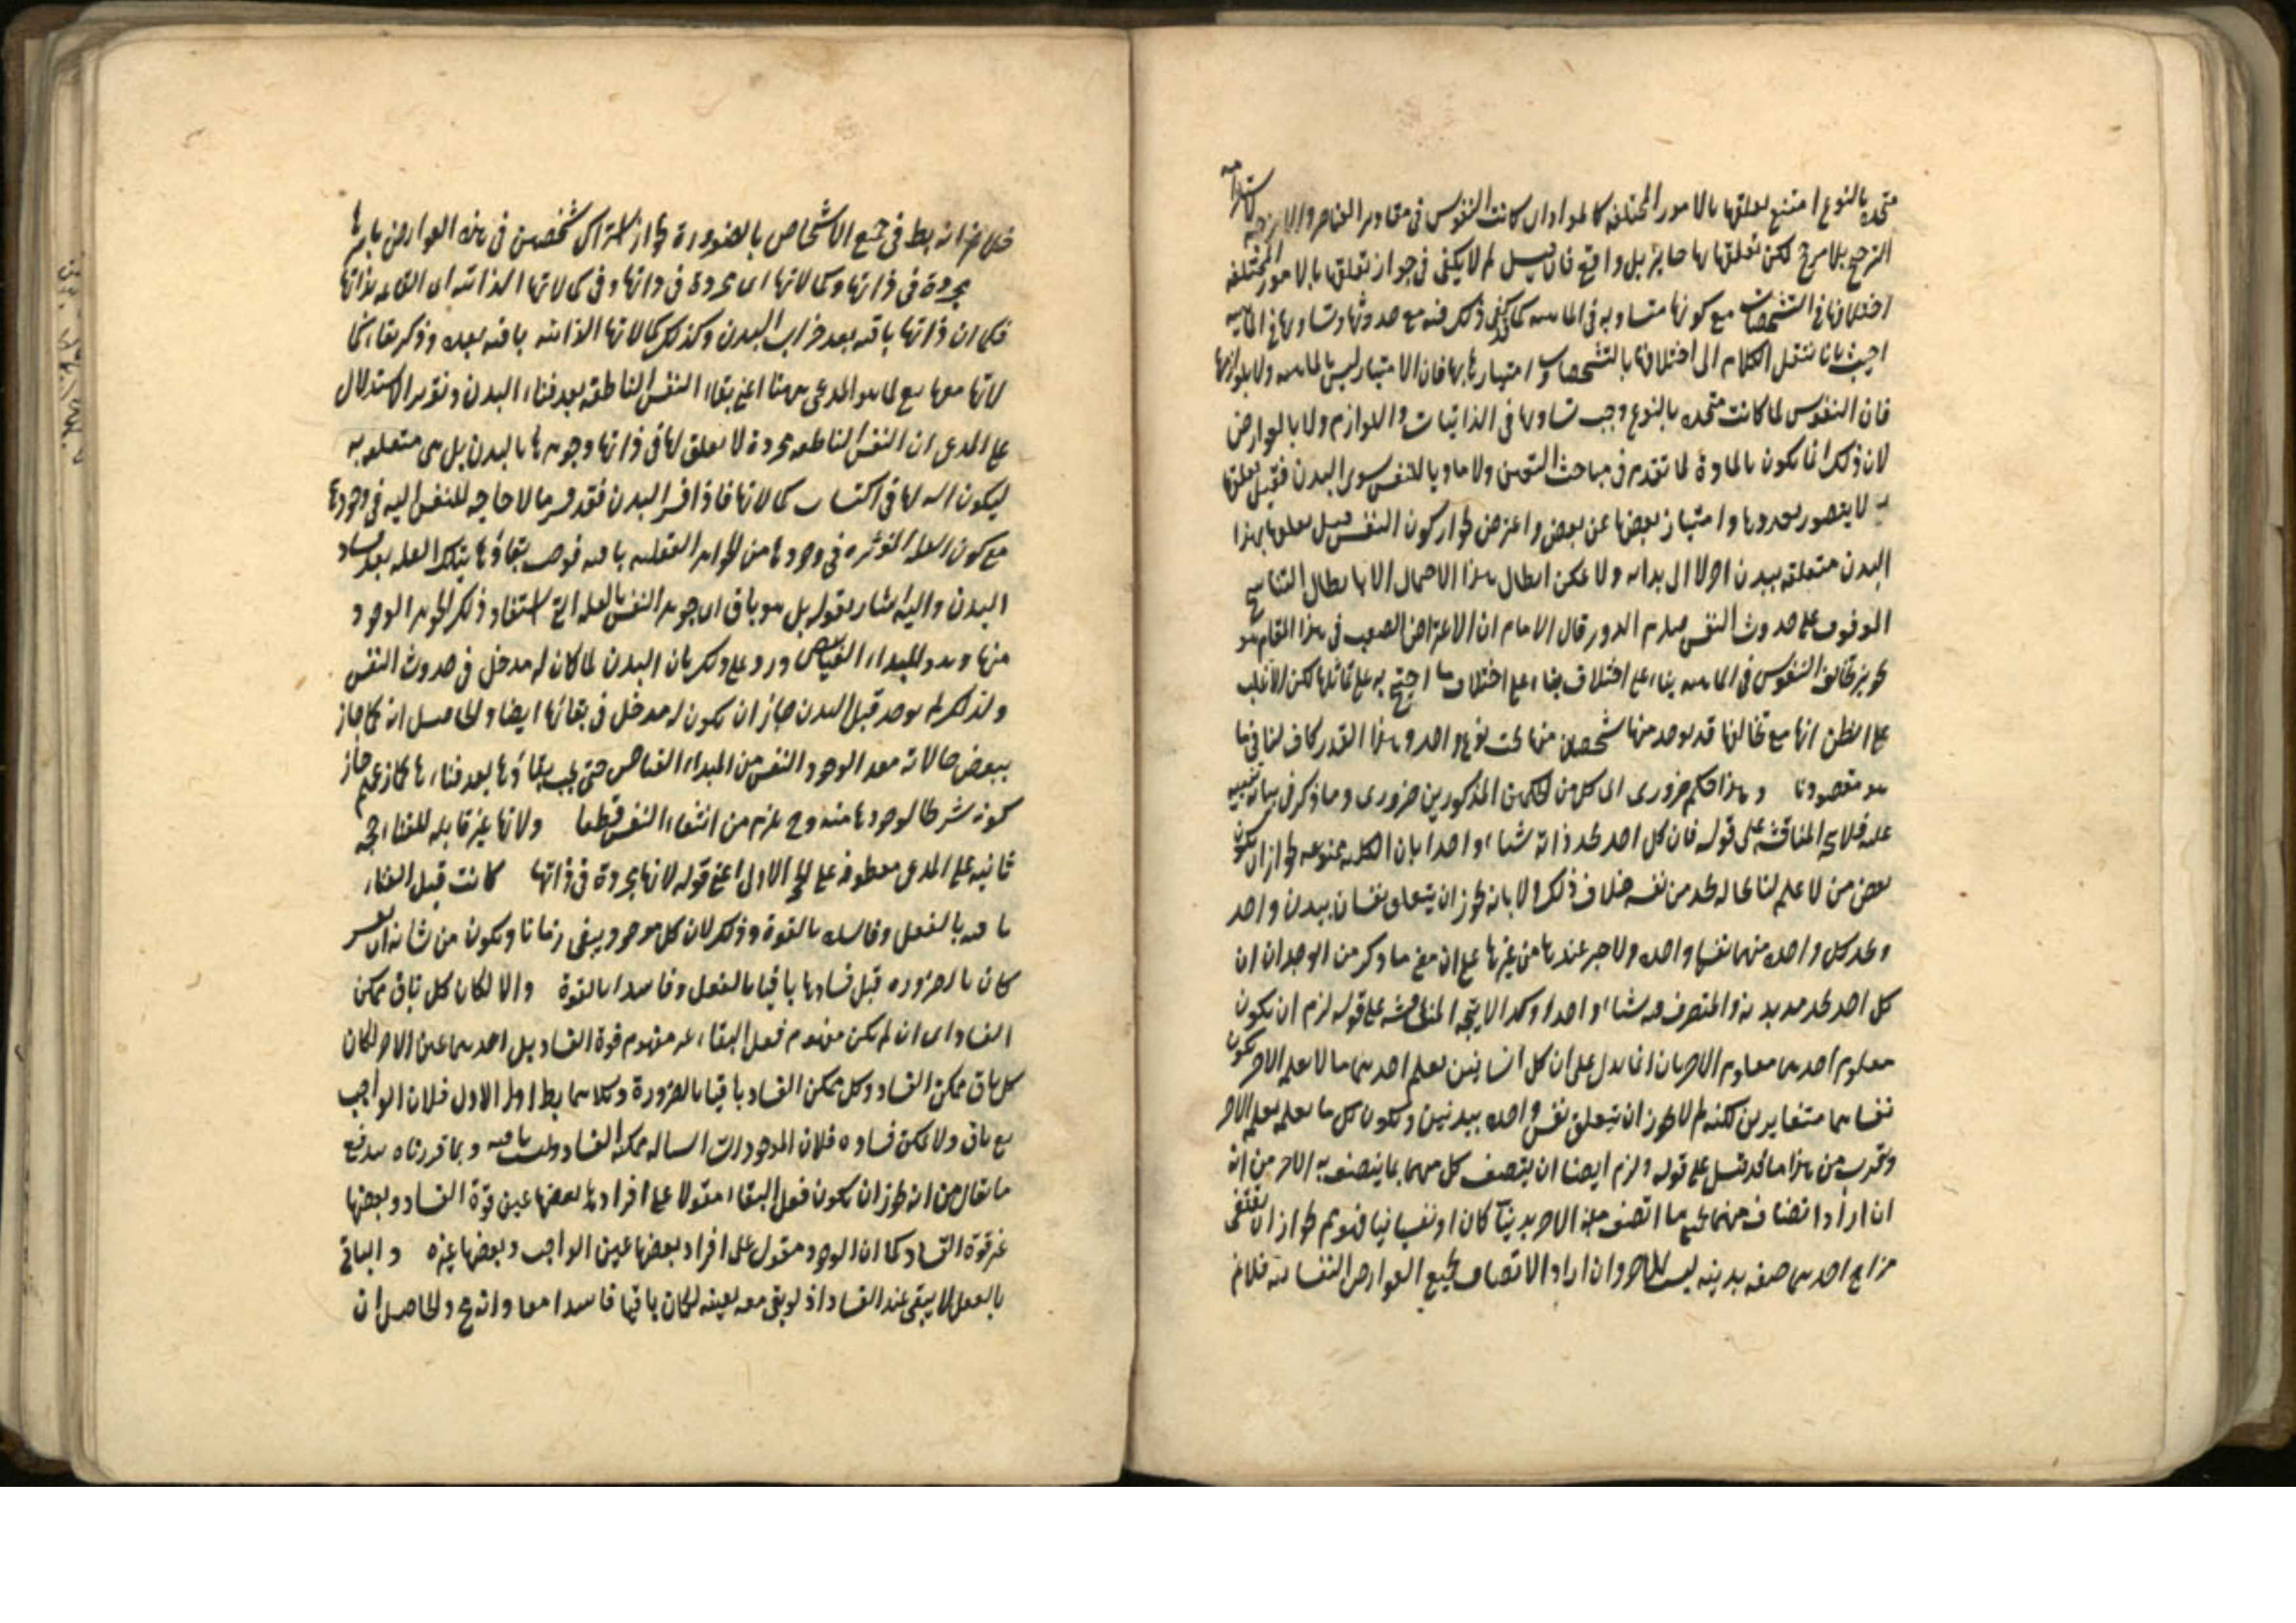 متحده بالنوع امتنع تعلقها بالامور المختلفة كالمواد ان كانت النفوس في مقادير العناصر والامزجة
الترجيح بلا مرجح لكن تعلقها بها جايز بل واقع فان قيل لم لا يكفي في جواز تعلقها بالامور المختلفة
اختلافها في التشخصات مع كونها متساويه في الماهيه كما كفى ذلك فيه مع حدوثها وتساويها في الماهيه
اجيب بانا ننقل الكلام الى اختلافها بالتشخصات وامتيازها بها فان الامتياز ليس بالماهيه ولا بلوازمها
فان النفوس لما كانت متحده بالنوع وجب تساويها في الذاتيات واللوازم ولا بالعوارض
لان ذلك انما يكون بالمادة لما تقدم في مباحث التعين ولا ماديا للنفس سوى البدن فقبل تعلقها
به لا يتصور تعددها وامتياز بعضها عن بعض واعترض بجواز كون النفس قبل تعلقها بهذا
البدن متعلقه ببدن اخر لا الى بدايه ولا يمكن ابطال هذا الاحتمال الا بابطال التناسخ
الموقوف على حدوث النفس فيلزم الدور قال الامام ان الاعتراض الصعب في هذا المقام هو
تجويز تخالف النفوس في الماهيه بناء على اختلاف بناء على اختلاف ما احتج به على تماثلها لكن الاغلب
على الظن انها مع تخالفها قد يوجد منها شخصان منها تحت نوع واحد وهذا القدر كاف لنا فيما
هو مقصودنا وهذا حكم ضرورى الى كل من الحكمين المذكورين ضرورى وما ذكر في بيانه تنبيه
عليه فلا يرد المناقشه على قوله فان كل احد يجد ذاته شيئا واحدا بان الكليه ممنوعه لجواز ان يكون
بعض من لا علم لنا بحاله يجد من نفسه خلاف ذلك ولا بانه يجوز ان يتعلق نفسان ببدن واحد
ويجد كل واحده منهما نفسها واحده ولا خبر عندها من غيرها على ان معنى ما ذكر من الوجدان ان
كل احد يجد مدبر بدنه والمتصرف فيه شيئا واحدا وكذا لا يتجه المناقشه على قوله لزم ان يكون
معلوم احدهما معلوم الاخر بان انما يدل على ان كل انسانين يعلم احدهما ما لا يعلم الاخر يكون
نفساهما متغايرين لكنه لم لا يجوز ان يتعلق نفس واحده ببدنين ويكون كل ما يعلمه يعلمه الاخر
وتقرب من هذا ما قد قيل على قوله ولزم ايضا ان يتصف كل منهما بما يتصف به الاخر من انه
ان اراد اتصاف منهما بجميع ما اتصف به الاخر بدنيا كان او نفسانيا فهو مم لجواز ان يقتضى
مزاج احدهما صفه بدنيه ليست للاخر وان اراد الاتصاف بجميع العوارض النفسانيه فلا نم
خلافه فانه يط في جميع الاشخاص بالضرورة لجواز اشتراك شخصين في هذه العوارض باسرها
مجردة في ذاتها وكمالاتها اى مجردة في ذاتها وفي كمالاتها الذاتيه اى القائمه بذاتها
فكما ان ذاتها باقيه بعد خراب البدن وكذلك كمالاتها الذاتيه باقيه بعده وذكر بقاء كما
لاتها معها مع ما هو المدعى ههنا اعنى بقاء النفس الناطقه بعد فناء البدن وتقرير الاستدلال
على المدعى ان النفس الناطقه مجردة لا تعلق لها في ذاتها وجوهرها بالبدن بل هي متعلقه به
ليكون اله لها في اكتساب كمالاتها فاذا فسد البدن فقد فسد ما لا حاجه للنفس اليه في وجودها
مع كون العله المؤثره في وجودها من الجواهر العقليه باقيه فوجب بقاؤها بتلك العله بعد فساد
البدن واليه اشار بقوله بل هو باق اى جوهر النفس بالعله التي استفاد ذلك الجوهر الوجود
منها وهو المبداء الفياض ورد على ذلك بان البدن لما كان له مدخل في حدوث النفس
ولذلك لم توجد قبل البدن جاز ان يكون له مدخل في بقائها ايضا والحاصل انه كما جاز
ببعض حالاته معد الوجود النفس من المبداء الفياض حتى يجب بقاؤها بعد فناءها كما زعم جاز
كونه شرطا لوجودها منه وح يلزم من انتفاءه انتفاء النفس قطعا ولانها غير قابله للفناء حجه
ثانيه على المدعى معطوفه على الحجه الاولى اعنى قوله لانها مجردة في ذاتها كانت قبل الفناء
باقيه بالفعل وفاسده بالقوة وذلك لان كل موجود يبقى زمانا ويكون من شانه ان يفسد
كان بالضروره قبل فسادها باقيا بالفعل وفاسدا بالقوة والا لكان كل باق ممكن
الفساد اى ان لم يكن مفهوم فعل البقاء غير مفهوم قوة الفساد بل احدهما عين الاخر لكان
كل باق ممكن الفساد وكل ممكن الفساد باقيا بالضرورة وكلاهما يط اما الاول فلان الواجب
مع باق ولا يمكن فساده فلان الموجودات السياله ممكنه الفساد وليست باقيه وبما قررناه يندفع
ما يقال من انه يجوز ان يكون فعل البقاء مقولا على افراد بعضها عين قوة الفساد وبعضها
غير قوة الفساد كما ان الوجود مقول على افراد بعضها عين الواجب وبعضها غيره والباقي
بالفعل لا يبقى عند الفساد اذ لو بقى معه بعينه لكان باقيا فاسدا معا وانه مح والحاصل ان